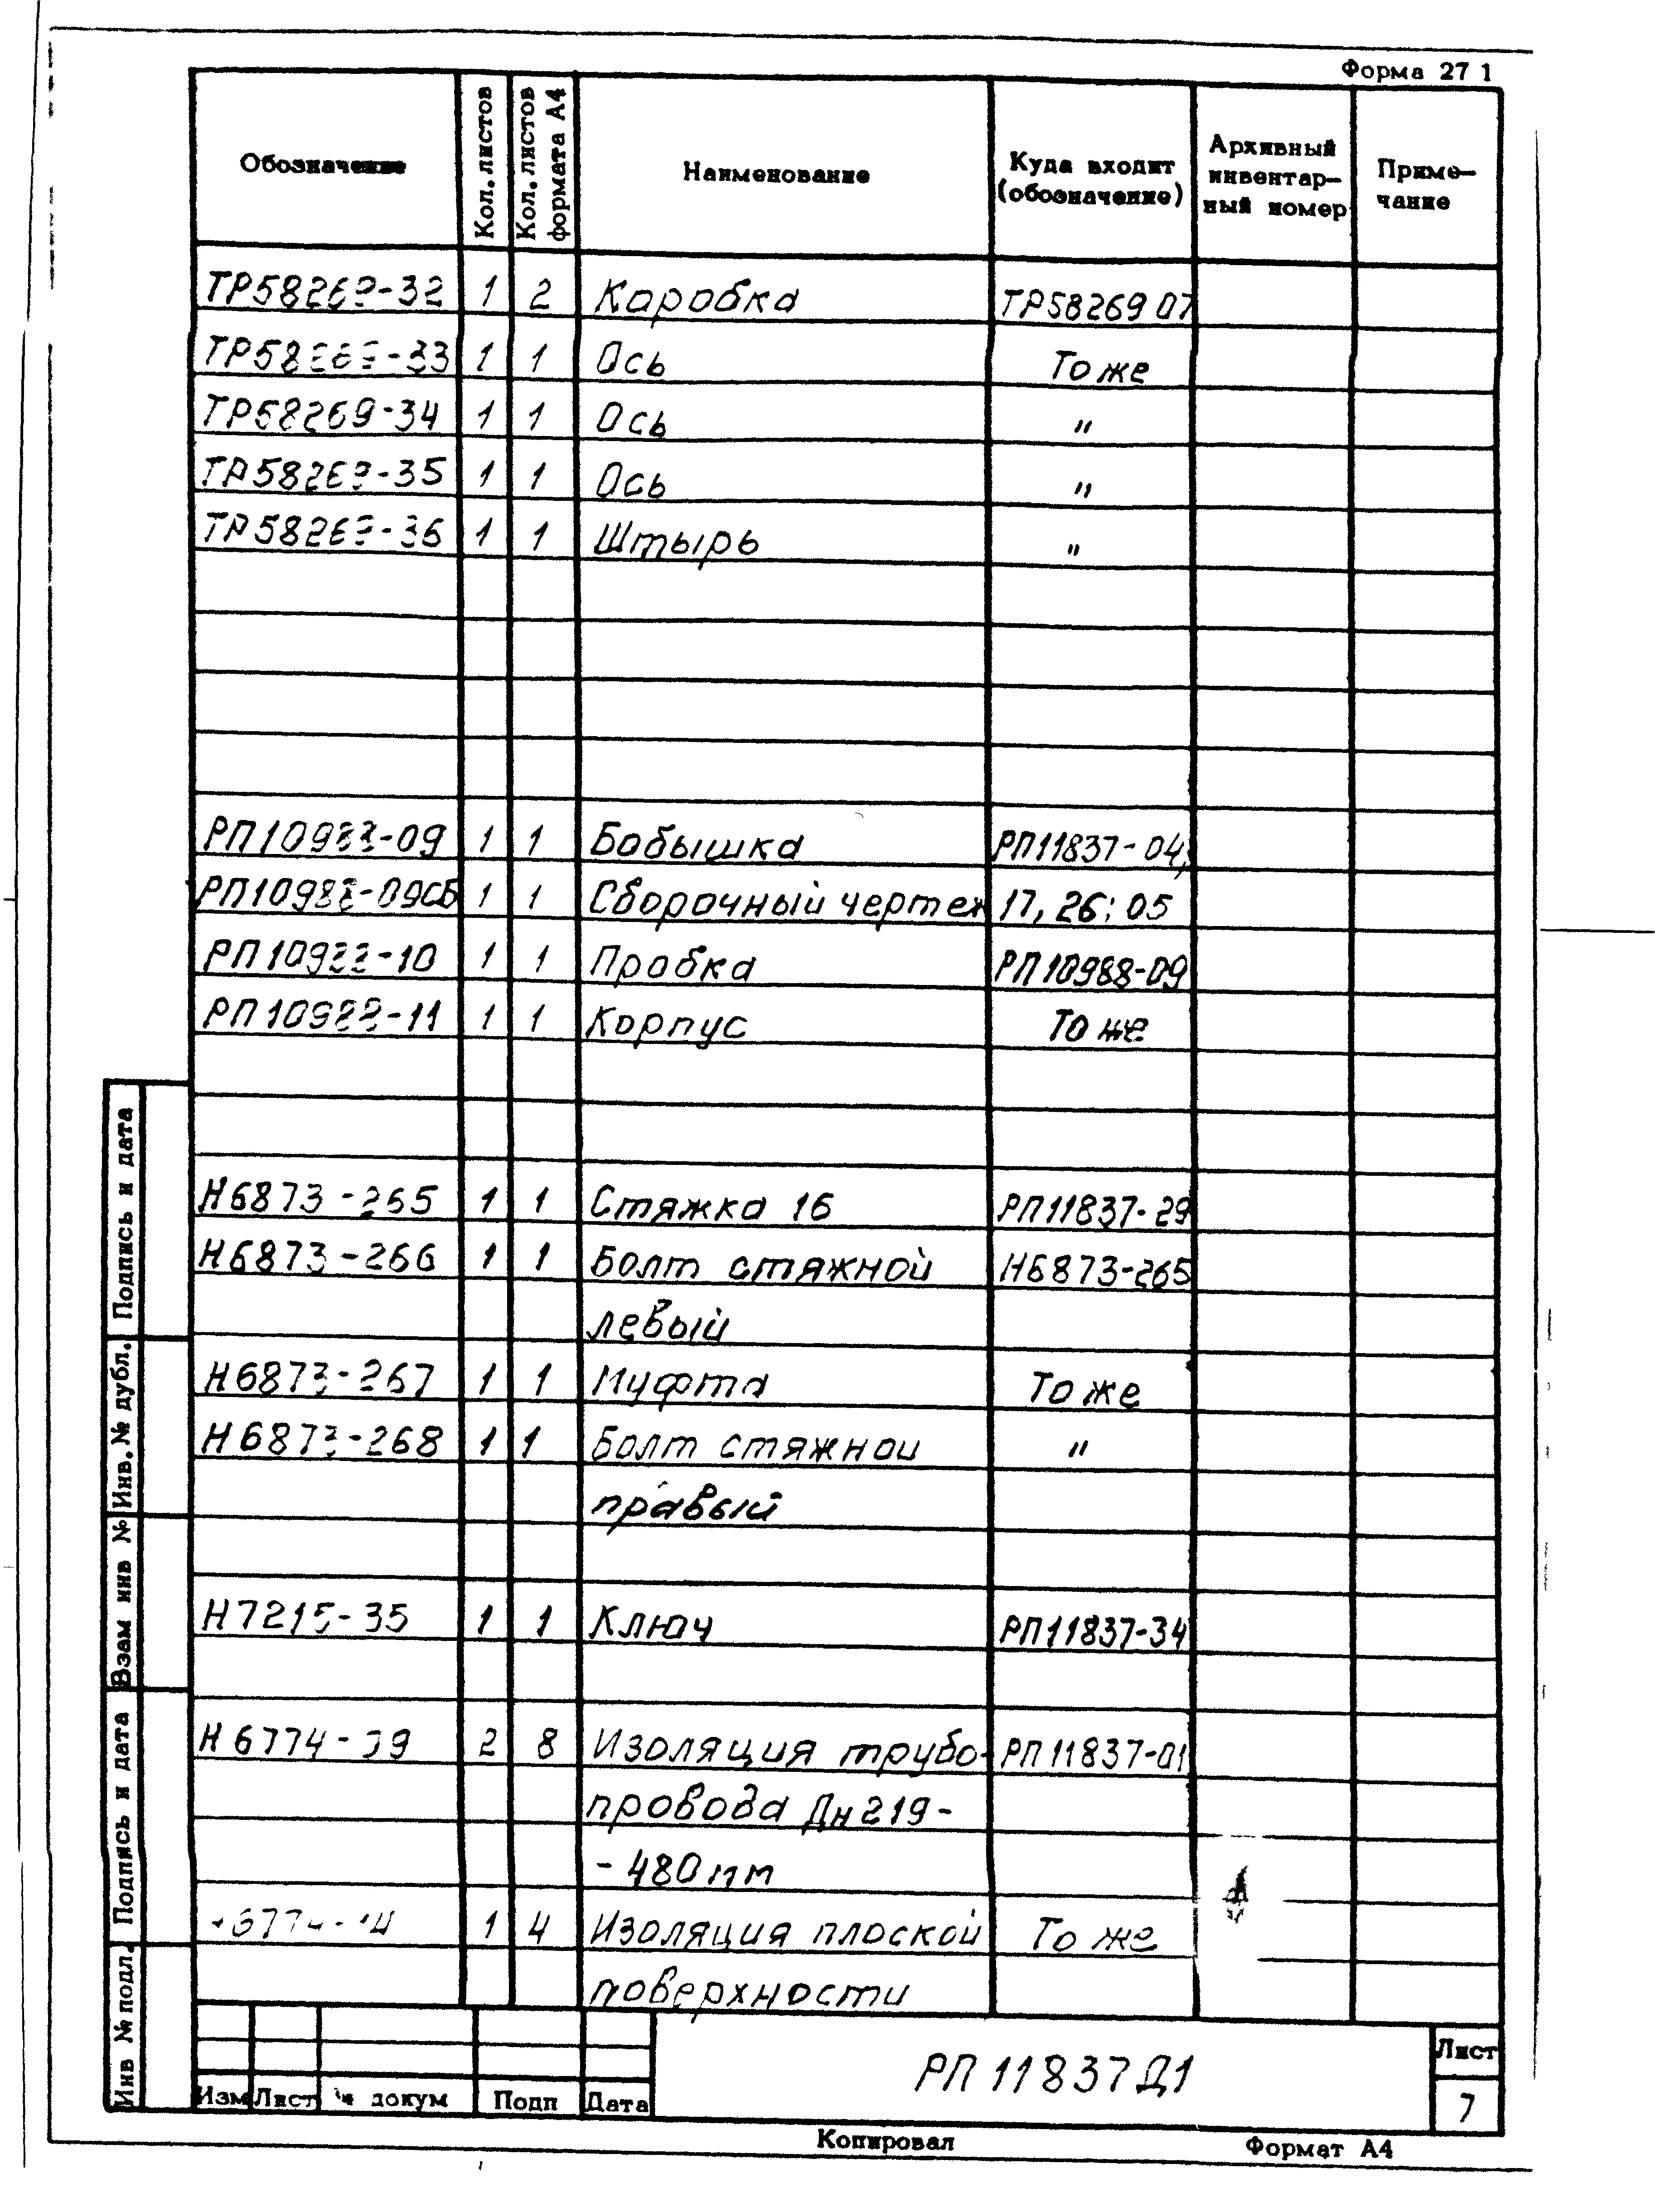 Форма 27 1
Обозначение Кол. листов Кол. листов формата А4 Наименование Куда входит (обозначение) Архивный инвентар- ный номер Приме- чание
ТР58269-32 1 2 Коробка ТР58269 07
ТР58269-33 1 1 Ось То же
ТР58269-34 1 1 Ось "
ТР58269-35 1 1 Ось "
ТР58269-36 1 1 Штырь "
РП10988-09 1 1 Бобышка РП11837-04,
РП10988-09СБ 1 1 Сборочный чертеж 17, 26; 05
РП10988-10 1 1 Пробка РП10988-09
РП10988-11 1 1 Корпус То же
Н6873-265 1 1 Стяжка 16 РП11837-29
Н6873-266 1 1 Болт стяжной Н6873-265
левый
Н6873-267 1 1 Муфта То же
Н6873-268 1 1 Болт стяжной "
правый
Н7215-35 1 1 Ключ РП11837-34
Н6774-39 2 8 Изоляция трубо- РП11837-01
провода Дн219-
-480мм
1 4 Изоляция плоской То же
поверхности
Инв № подл. Подпись и дата Взам инв № Инв. № дубл. Подпись и дата
РП 11837 Д1
Лист
7
Изм Лист № докум Подп Дата
Копировал Формат А4